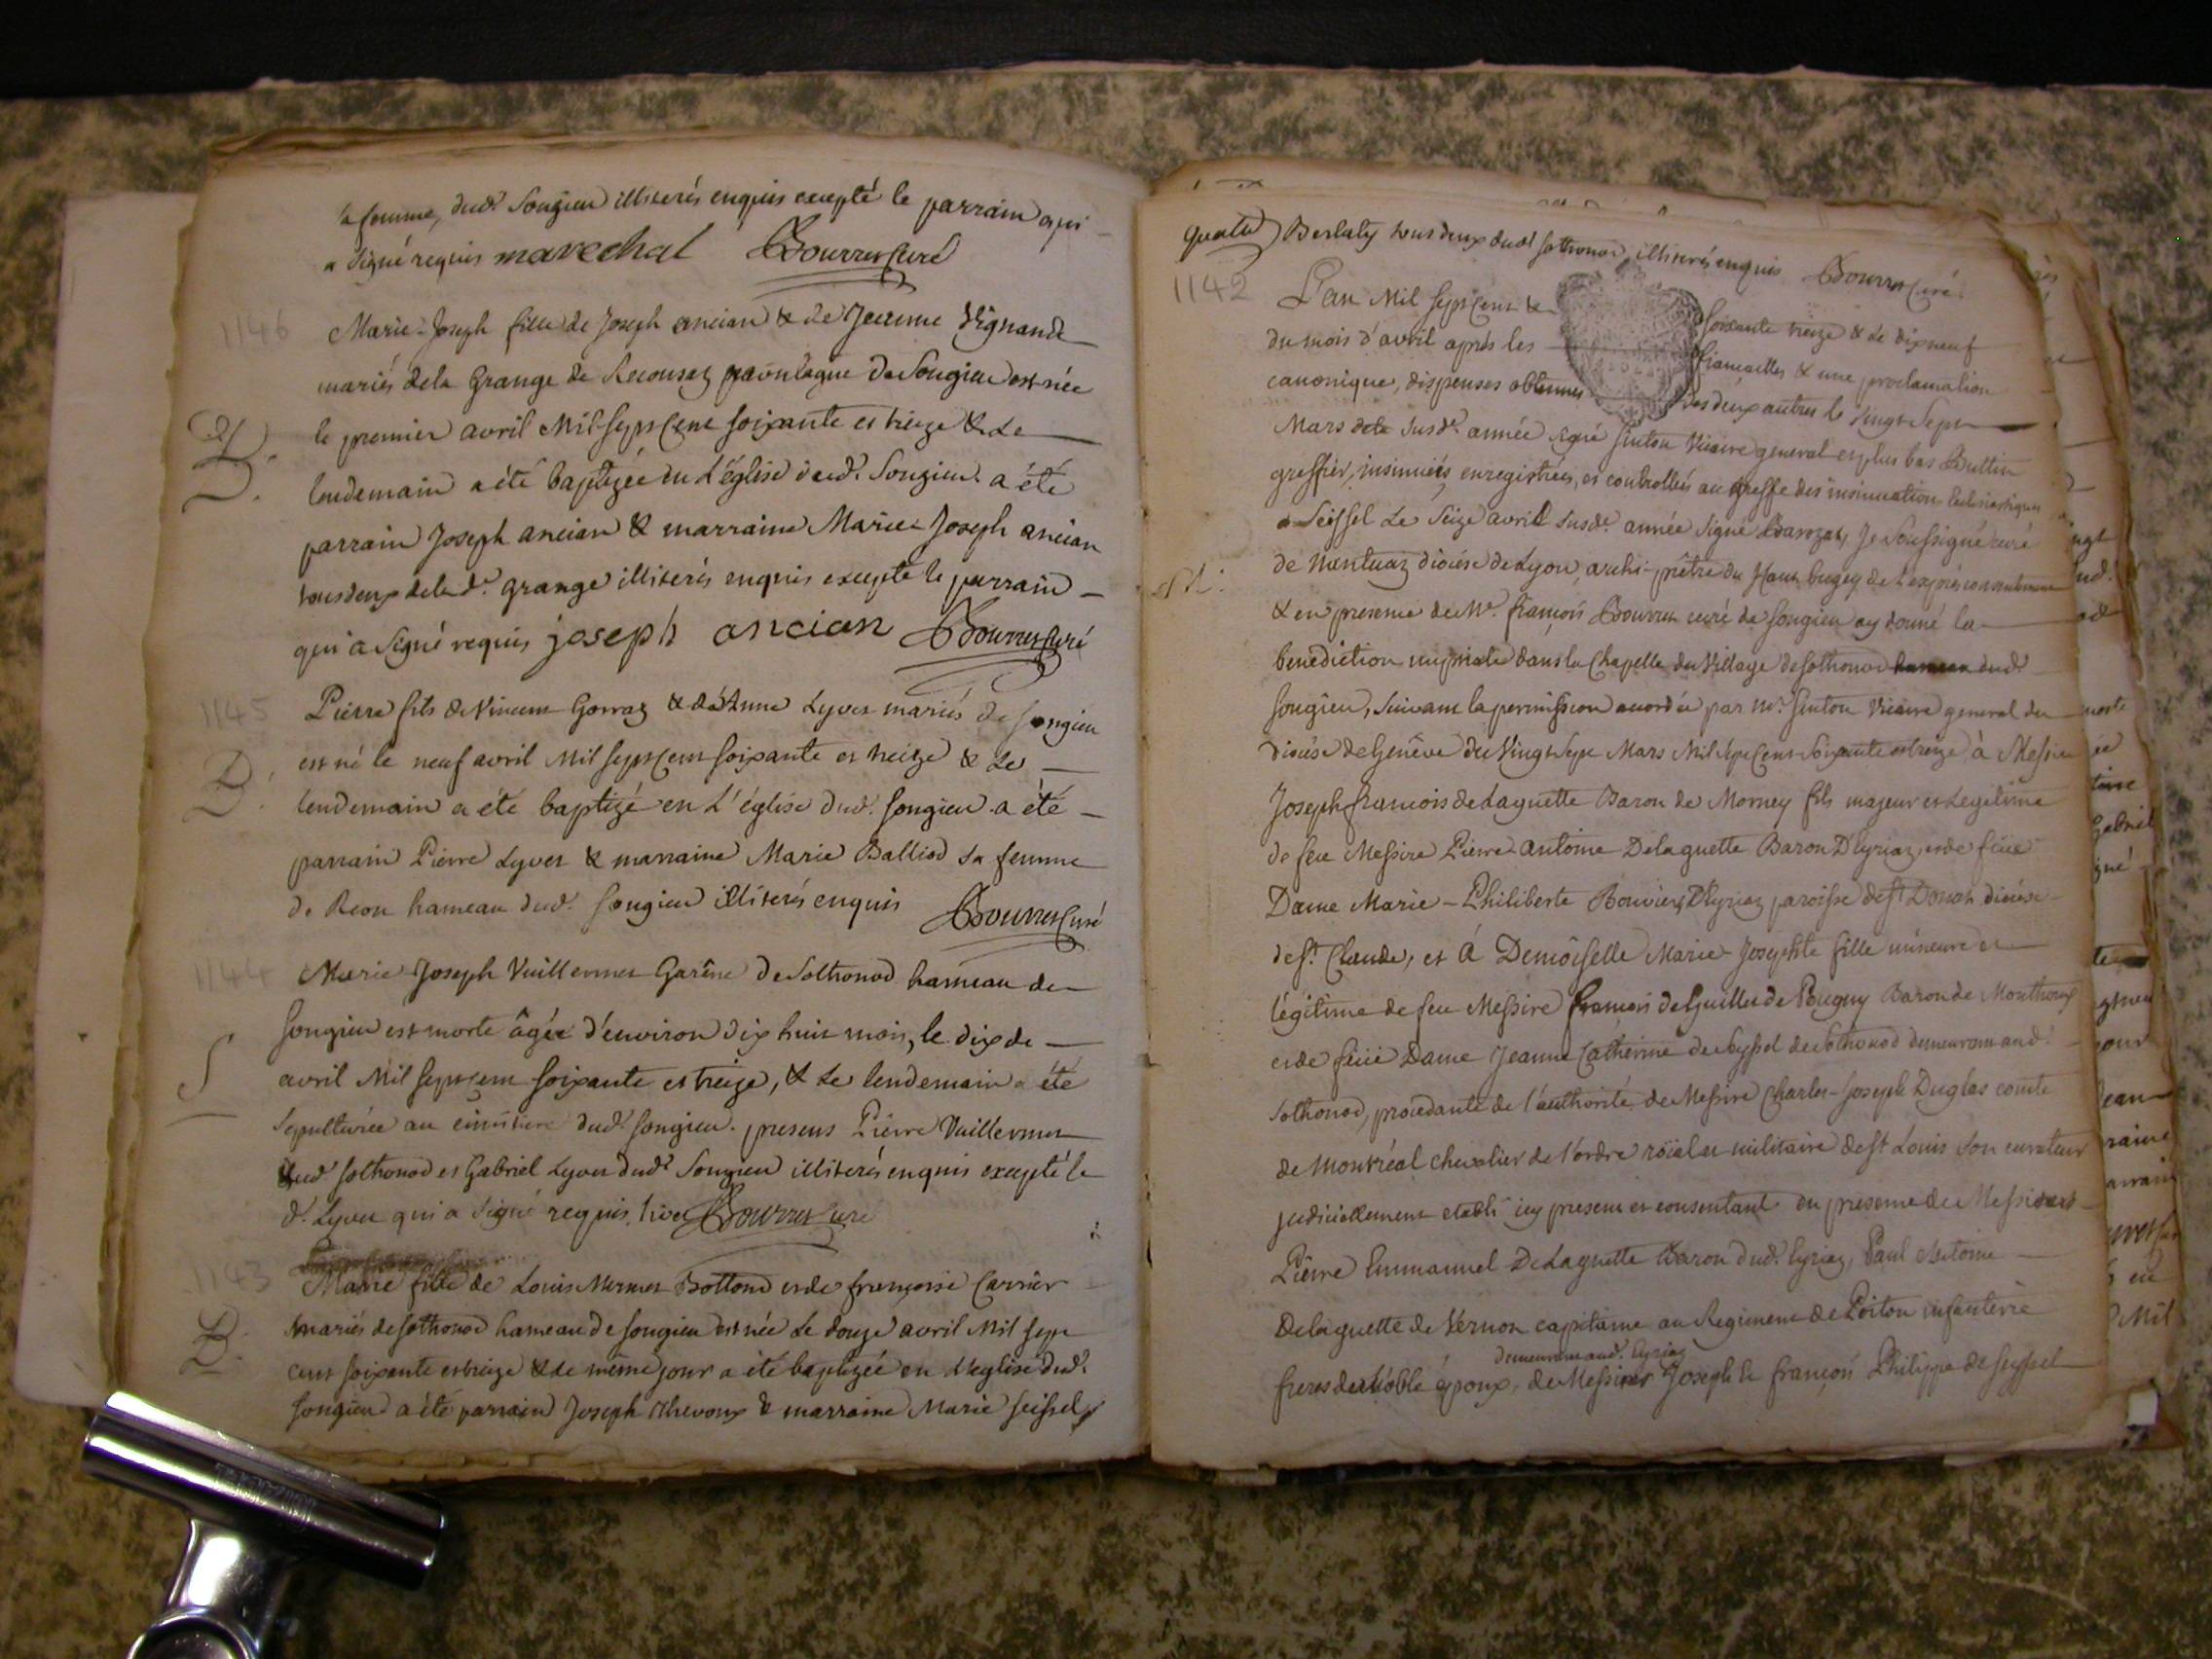 sa femme, dud.t Songieu illiterés enquis excepté le parrain qui
a signé requis marechal Bourret Curé
1146
Marie-Joseph fille de Joseph ancian & de Jeanne Vignande
mariés dela Grange de Recousaz de Songieu est née
B.
le premier avril Mil Sept Cent soixante et treize & Le
lendemain a été baptizée en L'église dud.t Songieu. a été
parrain Joseph ancian & marraine Marie-Joseph ancian
tous deux delad.e grange illiterés enquis excepté le parrain
qui a Signé requis joseph ancian Bourret Curé
1145
Pierre fils de Vincent Gorraz & d'Anne Lyvet mariés de songieu
est né le neuf avril Mil Sept Cent soixante et treize & Le
B.
lendemain a été baptizé en L'église dud.t songieu. a été
parrain Pierre Lyvet & marraine Marie Balliod sa femme
de Reon hameau dud.t songieu illiterés enquis Bourret Curé
1144
Marie Joseph Vuillermet Garine de Sothonod hameau de
Songieu est morte âgée d'environ dix huit mois, le dix de
S
avril Mil Sept Cent soixante et treize, & Le lendemain a été
Sepulturée au cimitiere dud.t songieu. presens Pierre Vuillermet
dud.t sothonod et Gabriel Lyvet dud.t Songieu illiterés enquis excepté le
d.t Lyvet qui a signé requis. livet Bourret curé
1143
Marie fille de Louis Mermet Bottond et de françoise Carrier
B.
mariés de sothonod hameau de songieu est née Le douze avril Mil sept
cent soixante et treize & Le même jour a été baptizée en L'eglise dud.t
songieu a été parrain Joseph Thevoux & marraine Marie seissel
quatre Berlaty tous deux dud.t sothonod, illiterés enquis Bourret Curé
1142
L'an Mil Sept Cent & Soixante treize & Le dixneuf
du mois d'avril après les fiançailles & une proclamation
canonique, dispenses obtenues des deux autres le Vingt Sept
Mars dela susd.e année signé sinton Vicaire general et plus bas Buttin
greffier, insinuées, enregistrées, et controllées au greffe des insinuation Eclesiastiques
a Seissel Le Seize avril susd.e année signé Je Soussigné curé
de Nantuaz diocése de Lyon, archi-prêtre du Haut bugey
& en presence de M.e françois Bourret curé de songieu ay donné la
benediction nuptiale dans la Chapelle du Village de sothonod hameau dud.t
songieu, suivant la permission accordée par M.r sinton Vicaire general du
diocése de Genêve du Vingt Sept Mars Mil Sept Cent Soixante et treize, à Messire
Joseph francois de Laguette Baron de Morney fils majeur et Legitime
de feu Messire Pierre Antoine Delaguette Baron D'lyriaz, et de feüe
Dame Marie-Philiberte Bouvier, D'lyriaz paroisse de st Donat diocése
de st. Claude, et à Demoiselle Marie-Josephte fille mineure et
légitime de feu Messire françois de Guilles de Pougny Baron de Monthoux
et de feüe Dame Jeanne Catherine de Seyssel de Sothonod demeurant aud.t
Sothonod, procedante de l'authorité de Messire Charles-Joseph Duglas comte
de Montréal chevalier de l'ordre roïal et militaire de st Louis son curateur
judiciellement etabli icy present et consentant en presence de Messieurs
Pierre Emmanuel DeLaguette Baron dud.t lyriaz, Paul Antoine
Delaguette de Vernon capitaine au Regiment de Poitou infanterie
demeurant aud.t lyriaz
freres du Noble époux, de Messires Joseph & françois Philippe de seyssel